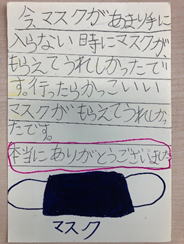 今マスクがあまり手に
入らない時にマスクが、
もらえてうれしかったで
す。行ったらかっこいい
マスクがもらえてうれしか
たです。
本当にありがとうございました
マスク